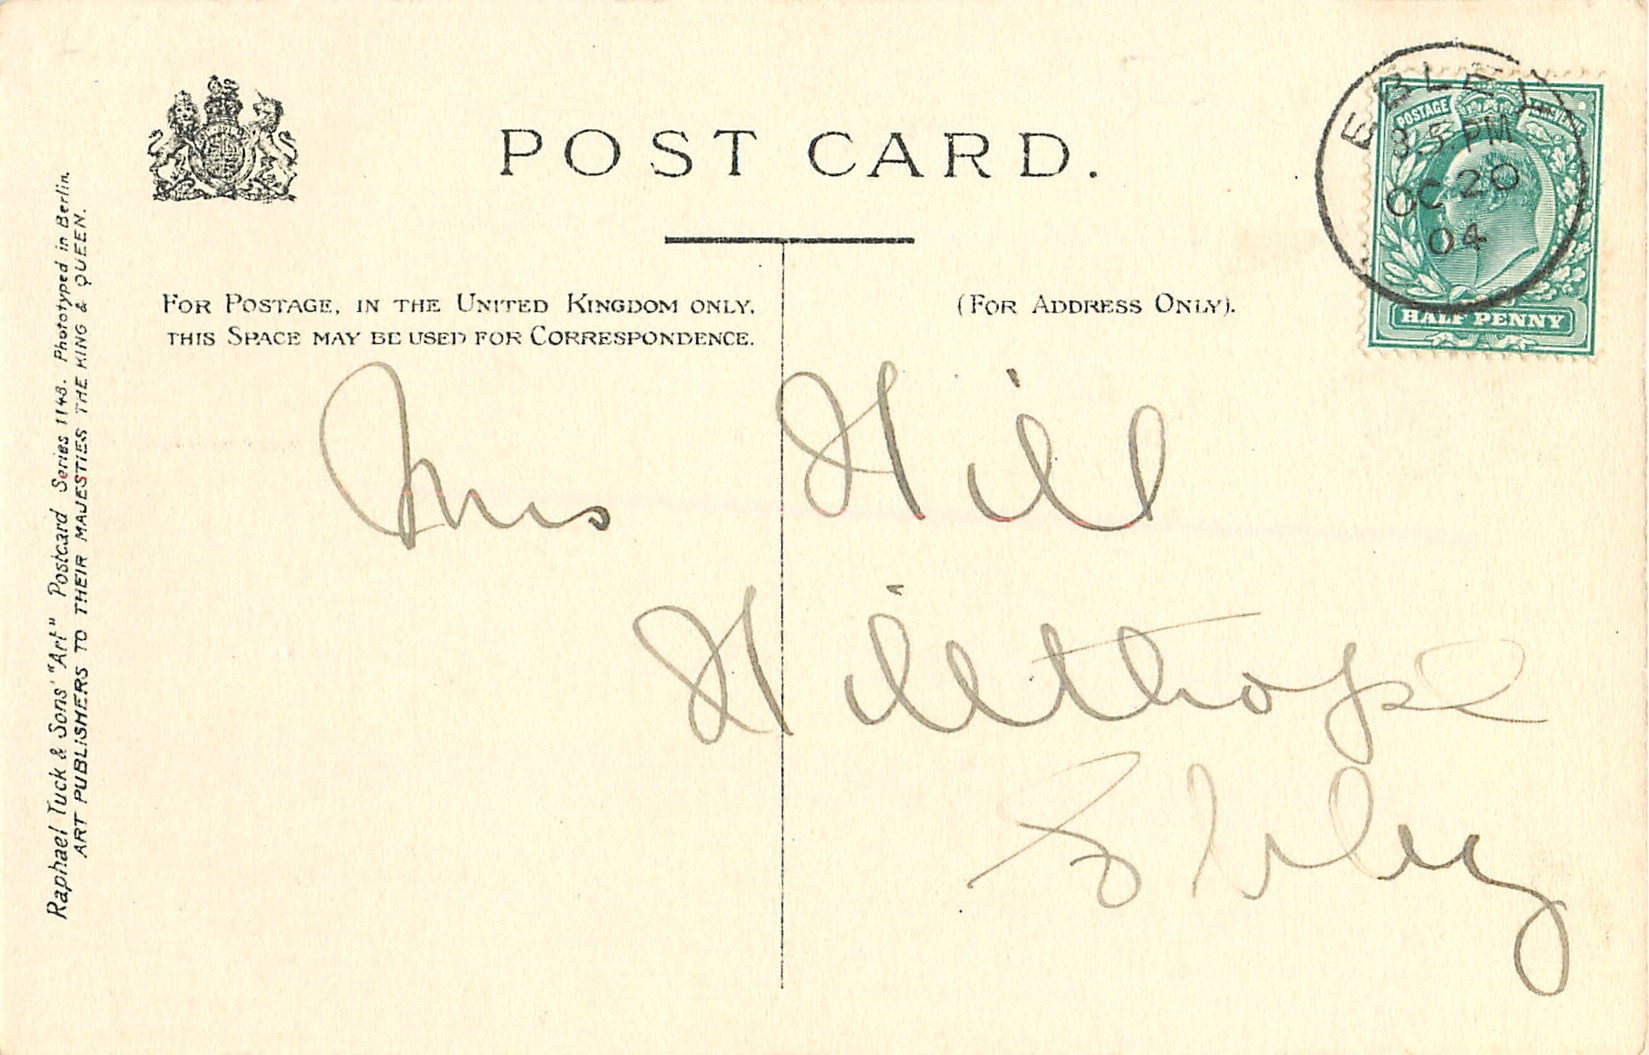 POST CARD.
FOR POSTAGE, IN THE UNITED KINGDOM ONLY,
THIS SPACE MAY BE USED FOR CORRESPONDENCE.
(FOR ADDRESS ONLY).
EBLEY
3.5.PM
OC 20
04
POSTAGE
HALF PENNY
Mrs Hill
Hillthorpe
Ebley
Raphael Tuck & Sons' "Art" Postcard Series 1148. Phototyped in Berlin.
ART PUBLISHERS TO THEIR MAJESTIES THE KING & QUEEN.